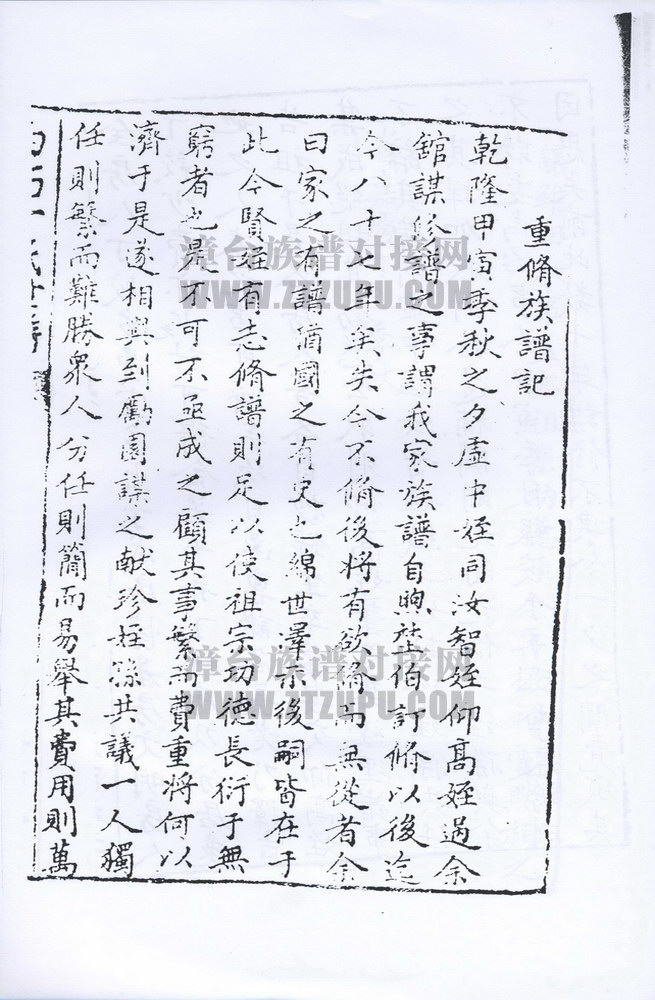 重脩族譜記
乾隆甲寅季秋之夕虛中姪同汝智姪仰高姪過余
舘謀修譜之事謂我家族譜自煦埜伯訂修以後迄
今八十七年矣失今不脩後將有欲脩而無從者余
曰家之有譜猶國之有史也綿世澤示後嗣皆在于
此今賢姪有志脩譜則足以使祖宗功德長衍于無
窮者也是不可不亟成之顧其事繁而費重將何以
濟于是遂相與到勵園謀之献珍姪孫共議一人獨
任則繁而難勝衆人分任則簡而易舉其費用則萬
漳台族谱对接网
WWW.ZTZUPU.COM
漳台族谱对接网
WWW.ZTZUPU.COM